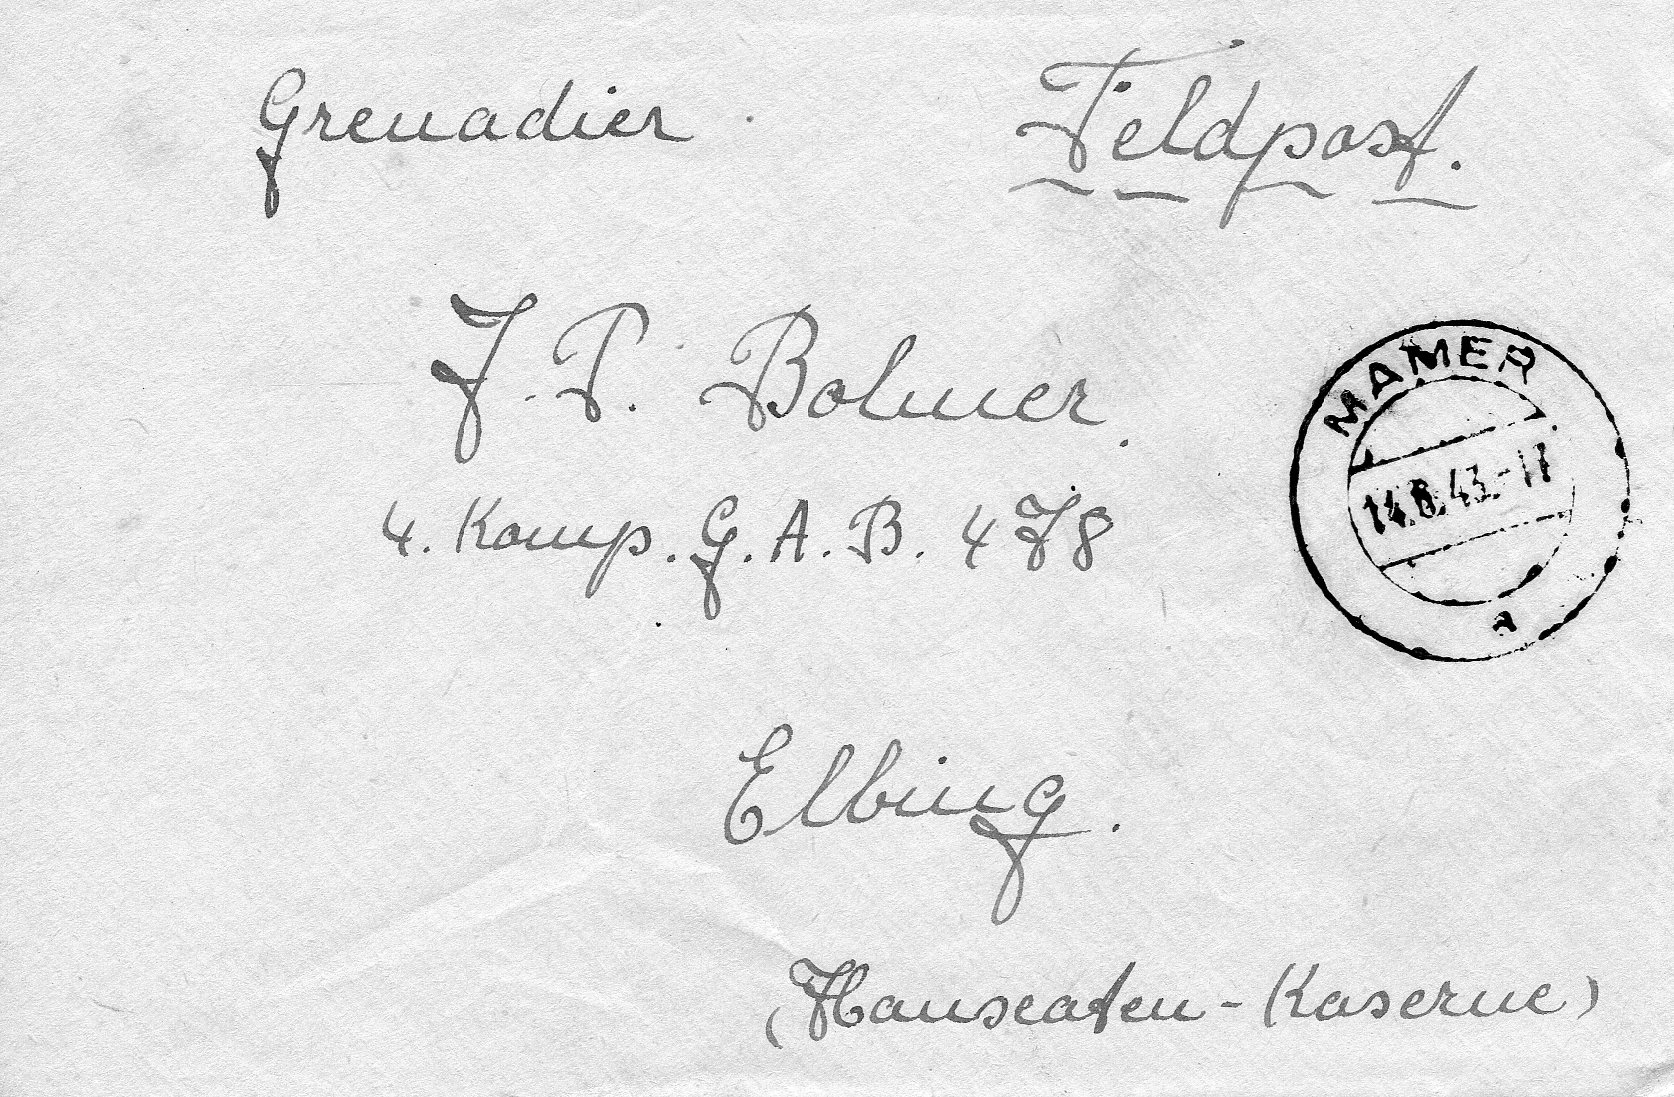 Grenadier
Feldpost.
J. P. Bolmer.
4. Komp. G. A. B. 478
MAMER
14.8.43.-17
a
Elbing.
(Hanseaten-Kaserne)